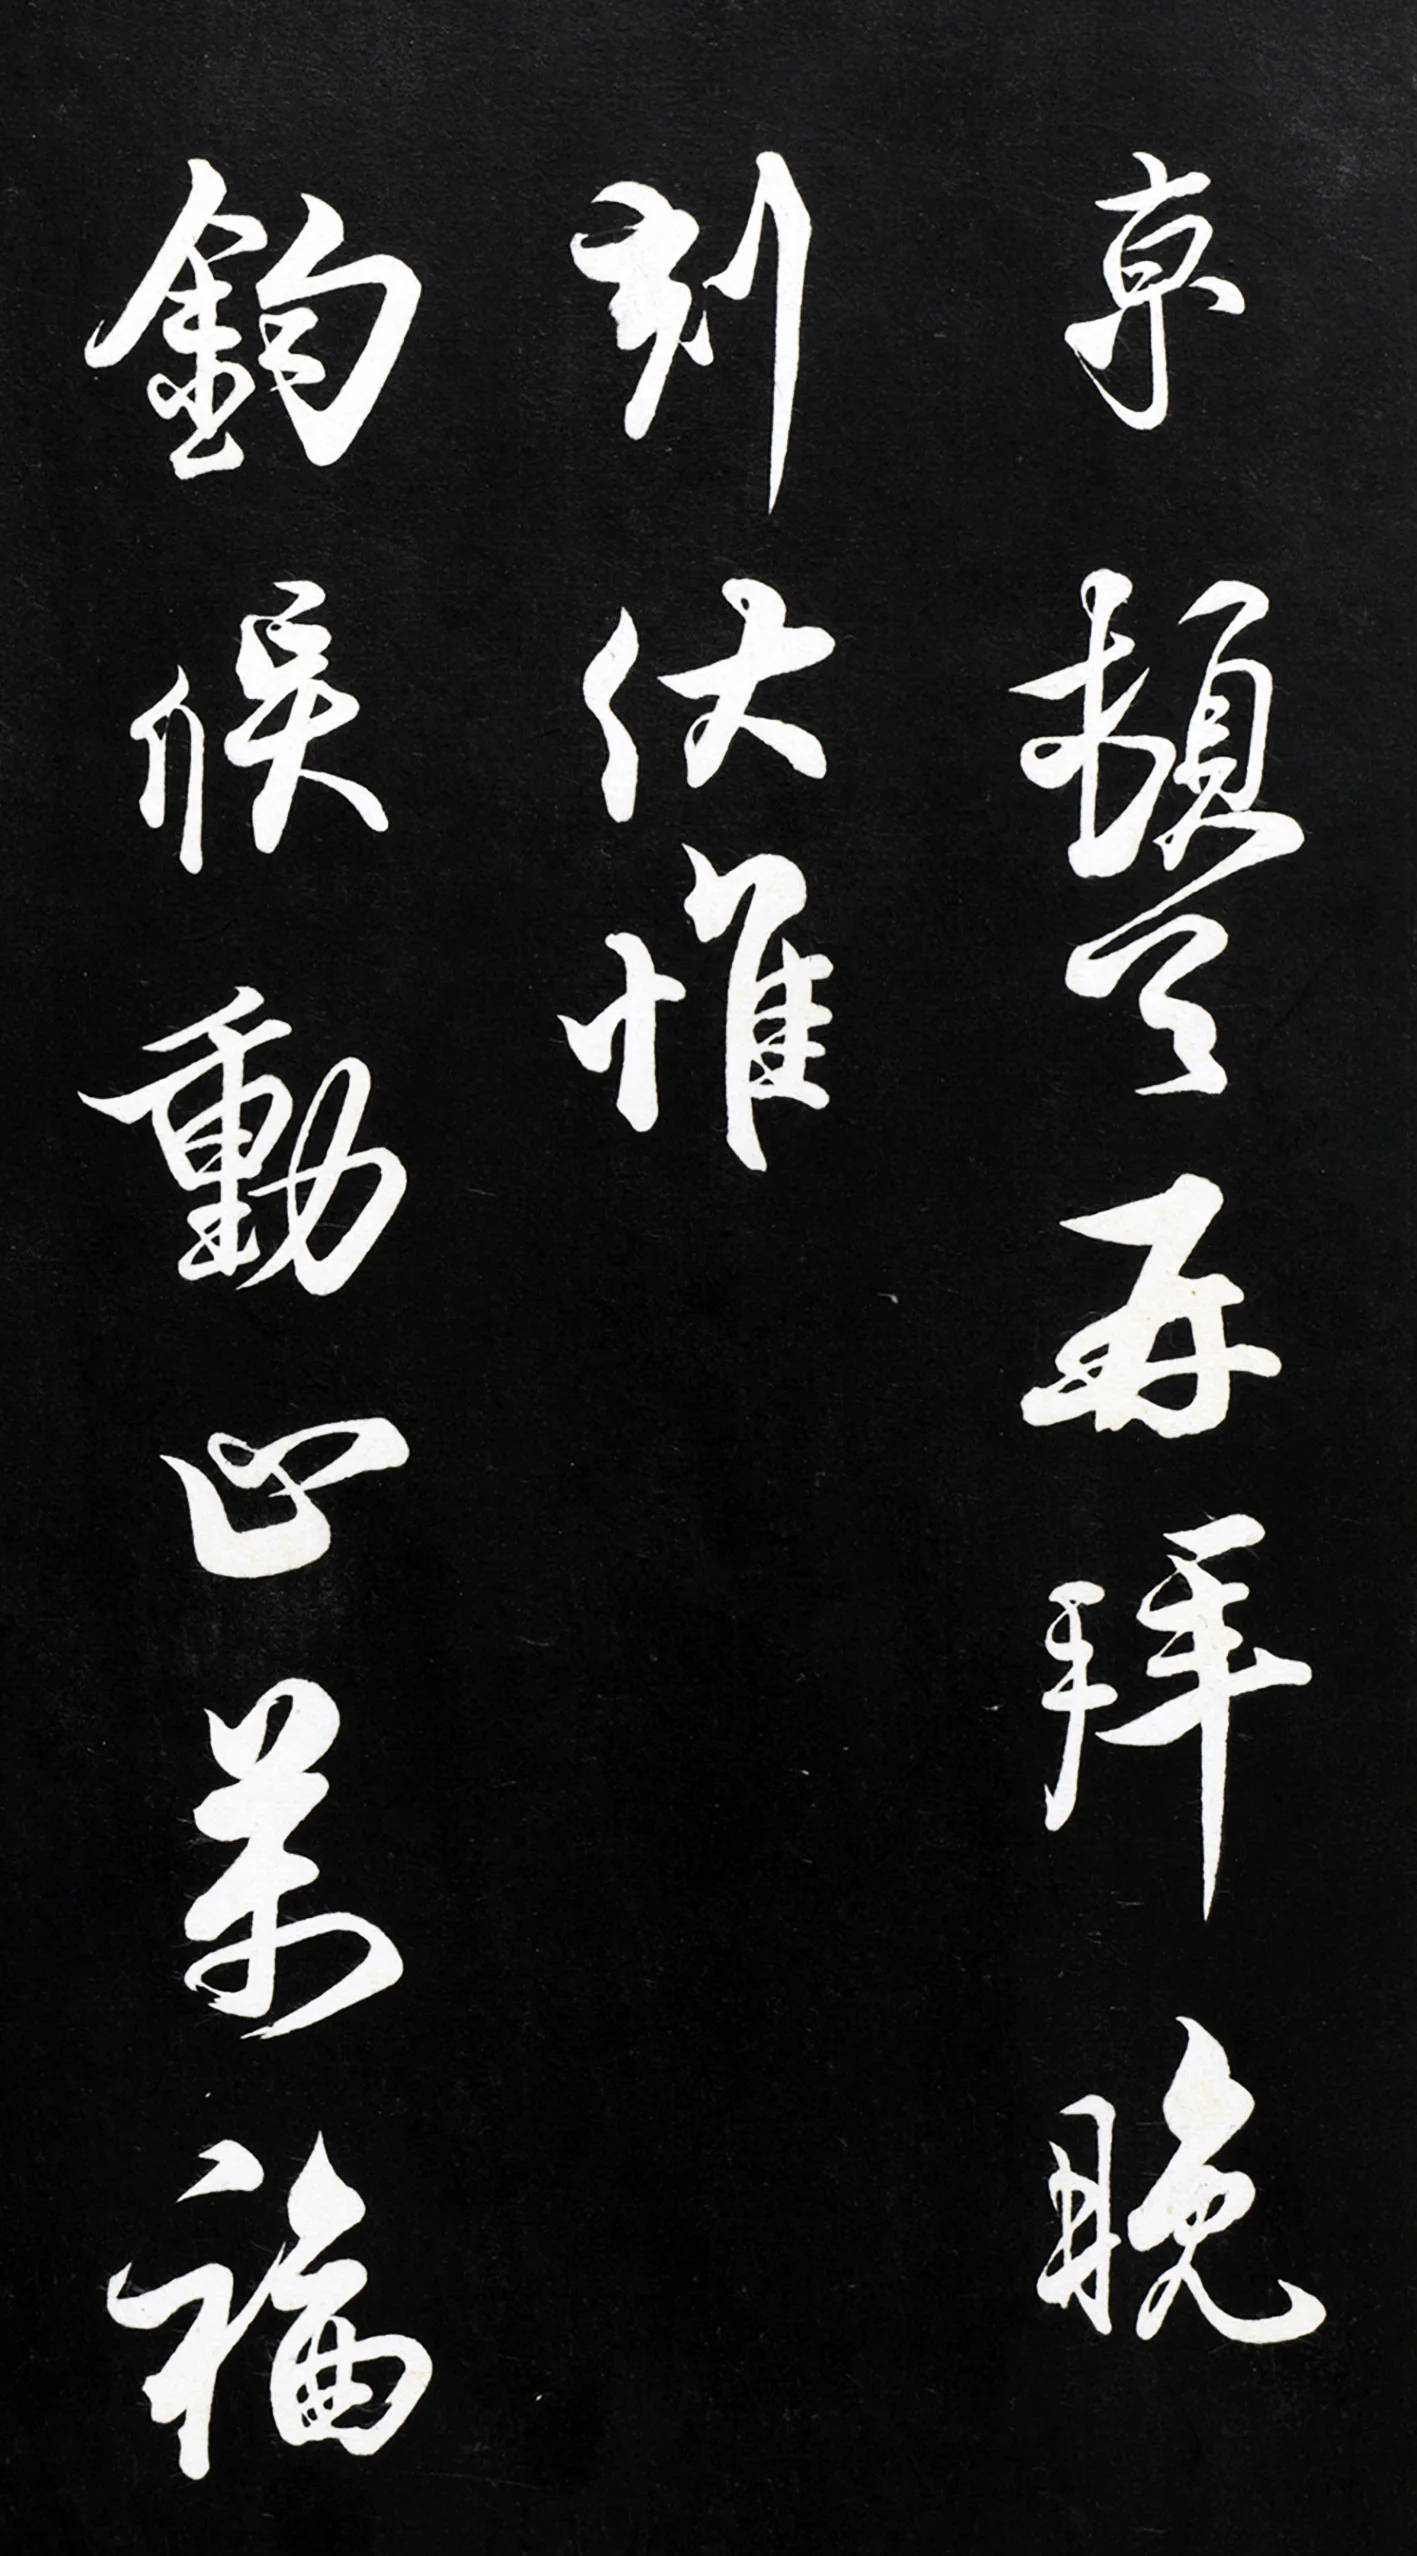 京頓首再拜晚
刻伏惟
鈞候動止萬福